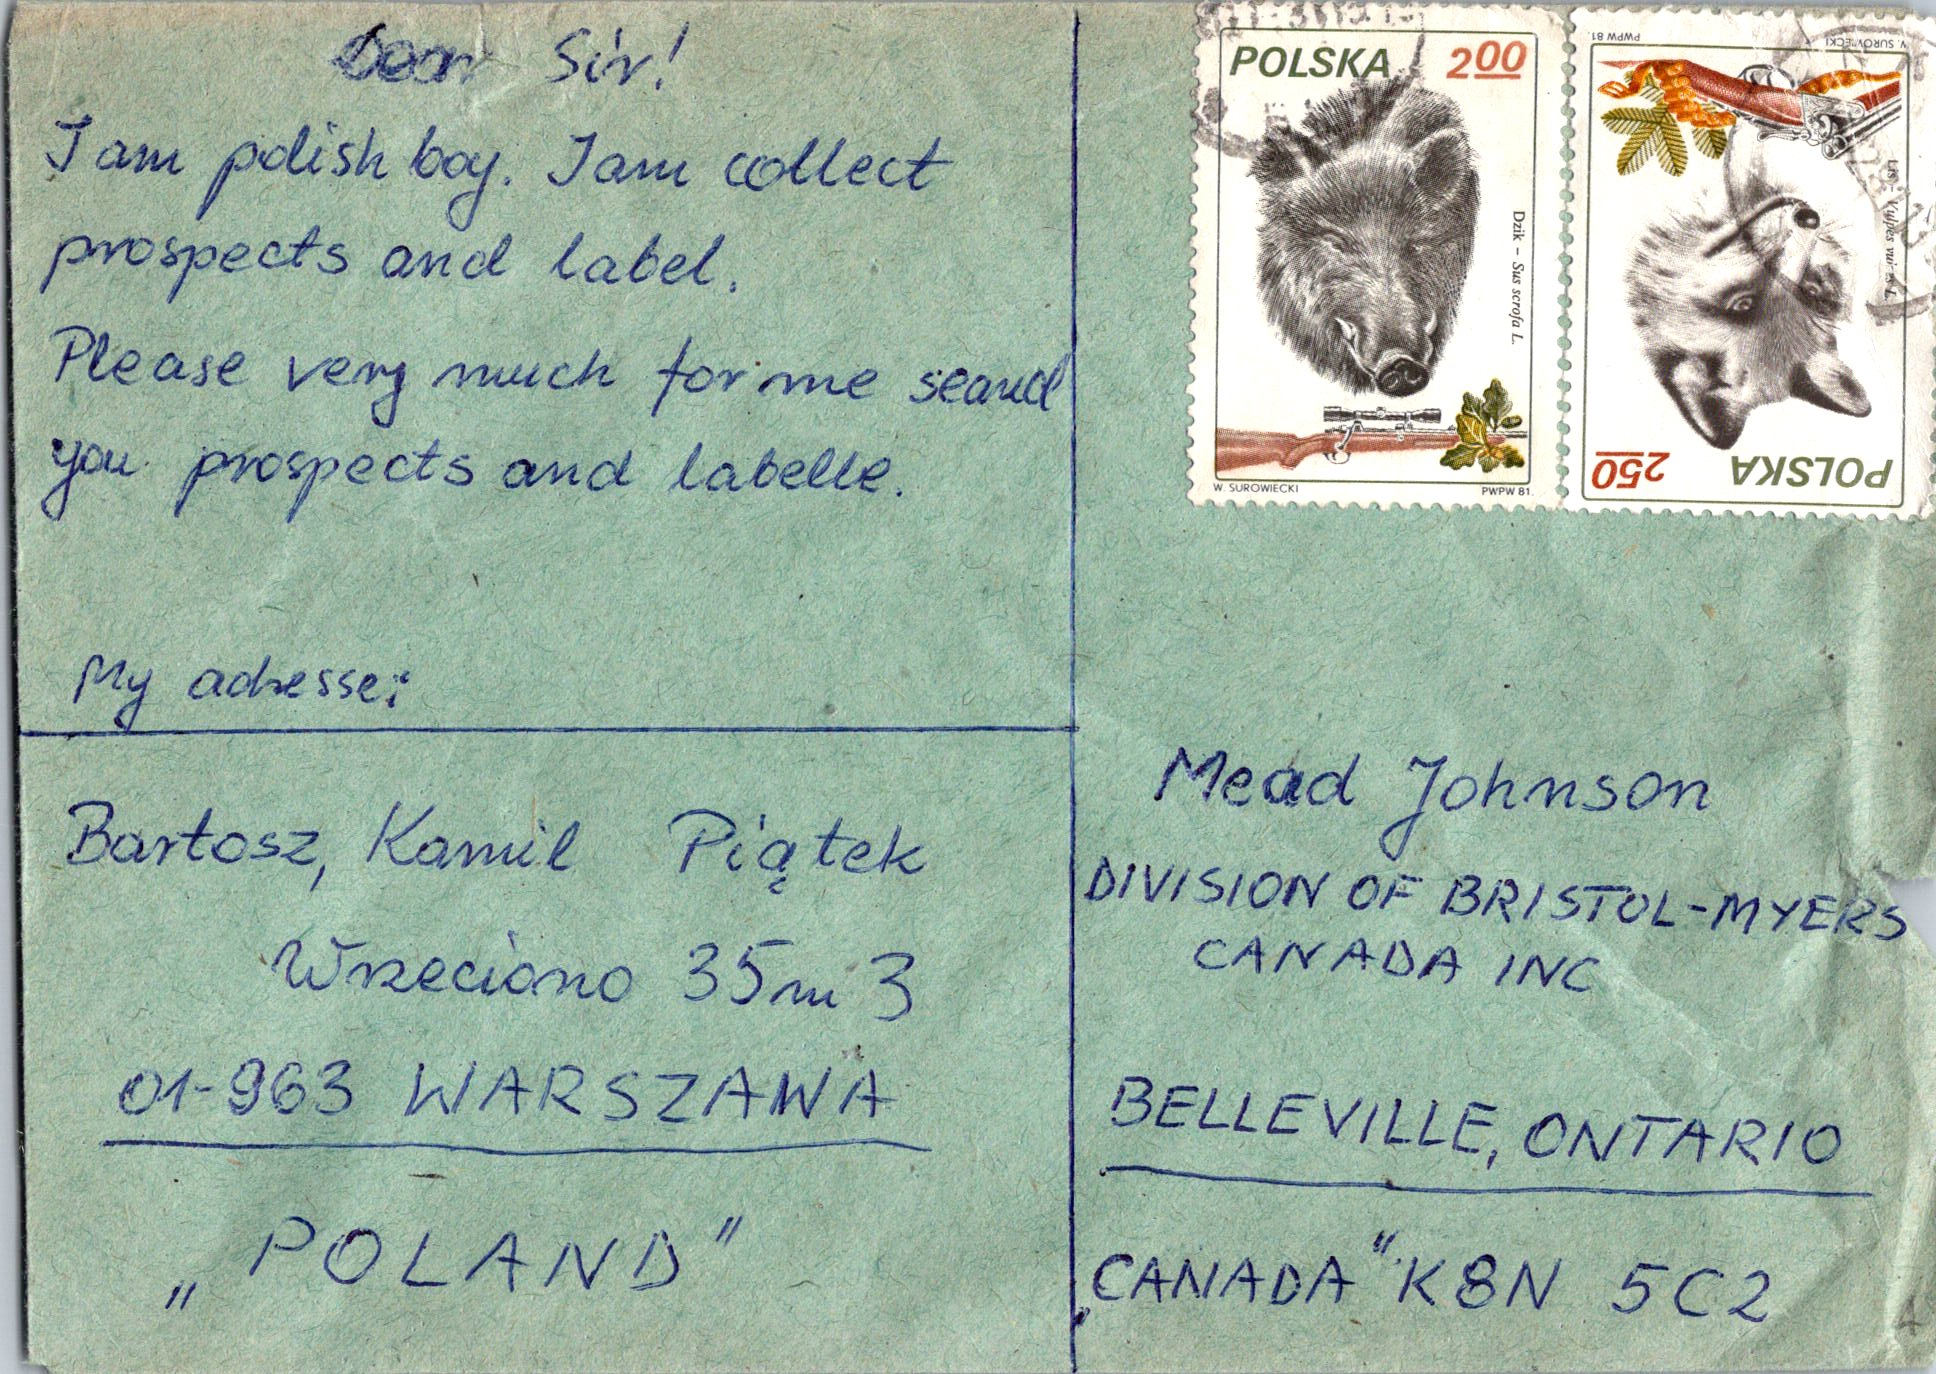 Dear Sir!
I am polish boy. I am collect
prospects and label.
Please very much for me seand
you prospects and labelle.
My adresse:
Bartosz, Kamil Piątek
Wrzeciono 35 m 3
01-963 WARSZAWA
„POLAND"
POLSKA 200
Dzik – Sus scrofa L.
W. SUROWIECKI PWPW 81.
POLSKA 250
Lis – Vulpes vulpes L.
W. SUROWIECKI PWPW 81.
Mead Johnson
DIVISION OF BRISTOL-MYERS
CANADA INC
BELLEVILLE, ONTARIO
„CANADA" K8N 5C2